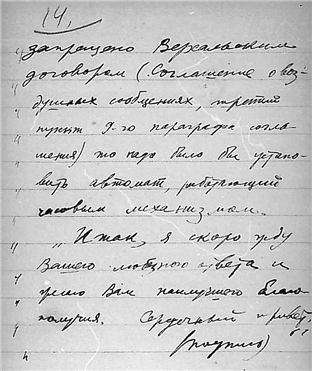 14,
„ запрещено Версальским
„ договором (Соглашение о воз-
„ душных сообщениях, третий
„ пункт 9-го параграфа согла-
„ шения) то надо было бы устано-
„ вить автомат, работающий
„ часовым механизмом.
„ „Итак, я скоро жду
„ Вашего любезного ответа и
„ желаю Вам наилучшего благо-
„ получия. Сердечный привет,"
„ (подпись)